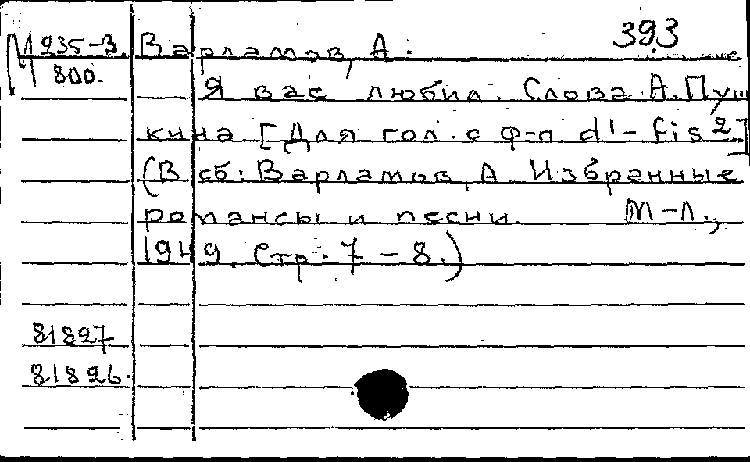 393
М 935-3. Варламов, А.
800.
Я вас любил. Слова А. Пуш
кина [Для гол. с ф-п d¹-fis²]
(В сб: Варламов, А. Избранные
романсы и песни. М-Л.,
1949. Стр. 7-8.)
81827
81826.